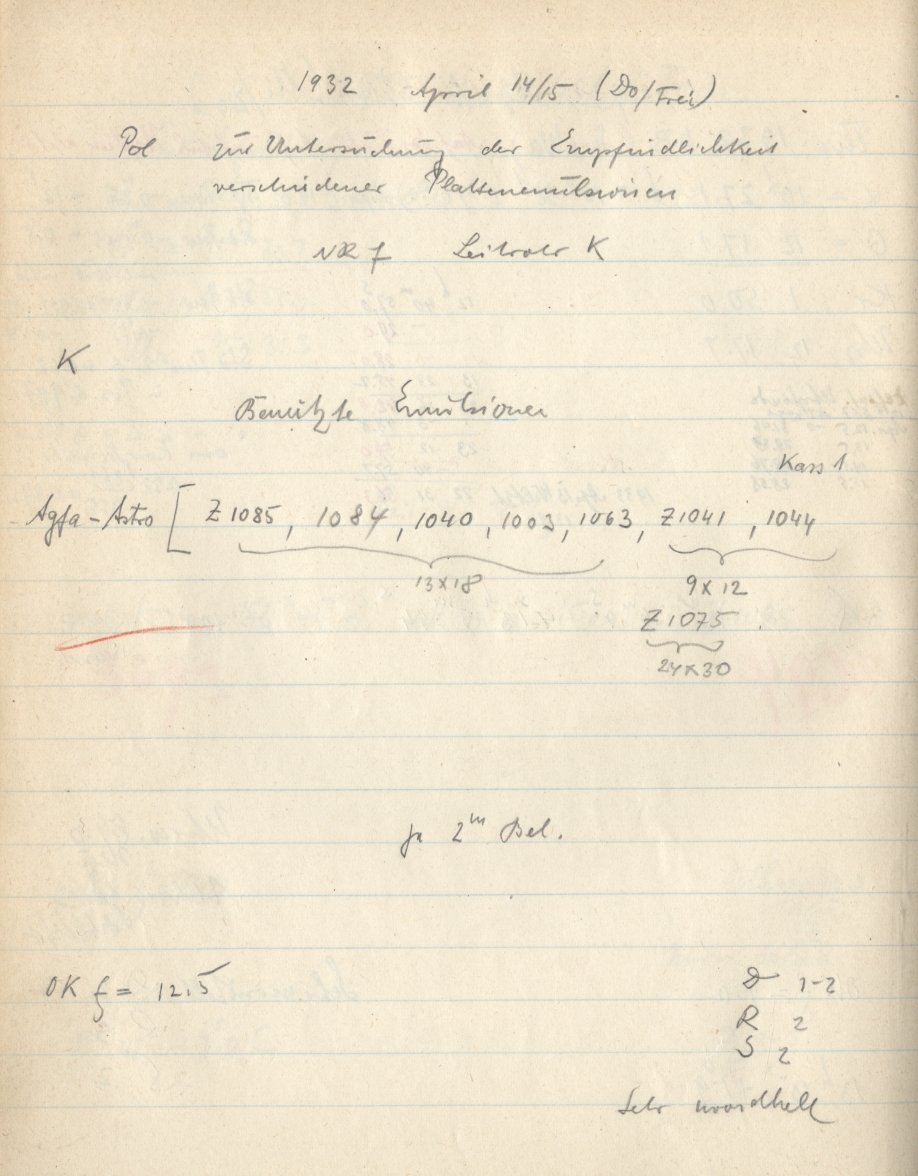 1932 April 14/15 (Do/Frei)
Pol zur Untersuchung der Empfindlichkeit
verschiedener Plattenemulsionen
NR f Leitrohr K
K
Benützte Emulsionen
Kass 1
Agfa-Astro [ Z 1085, 1084, 1040, 1003, 1063, Z1041, 1044
13x18
9x12
Z 1075.
24x30
je 2ᵐ Bel.
OK f = 12.5
D 1-2
R 2
S 2
Sehr mondhell